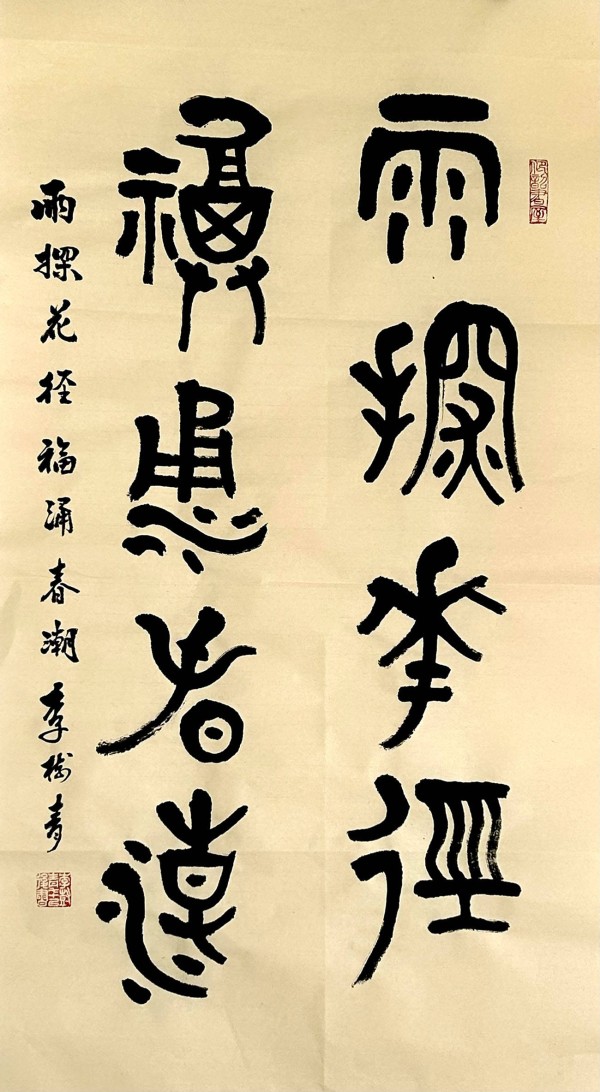 雨探花径
福涌春潮
雨探花径福涌春潮季樹青